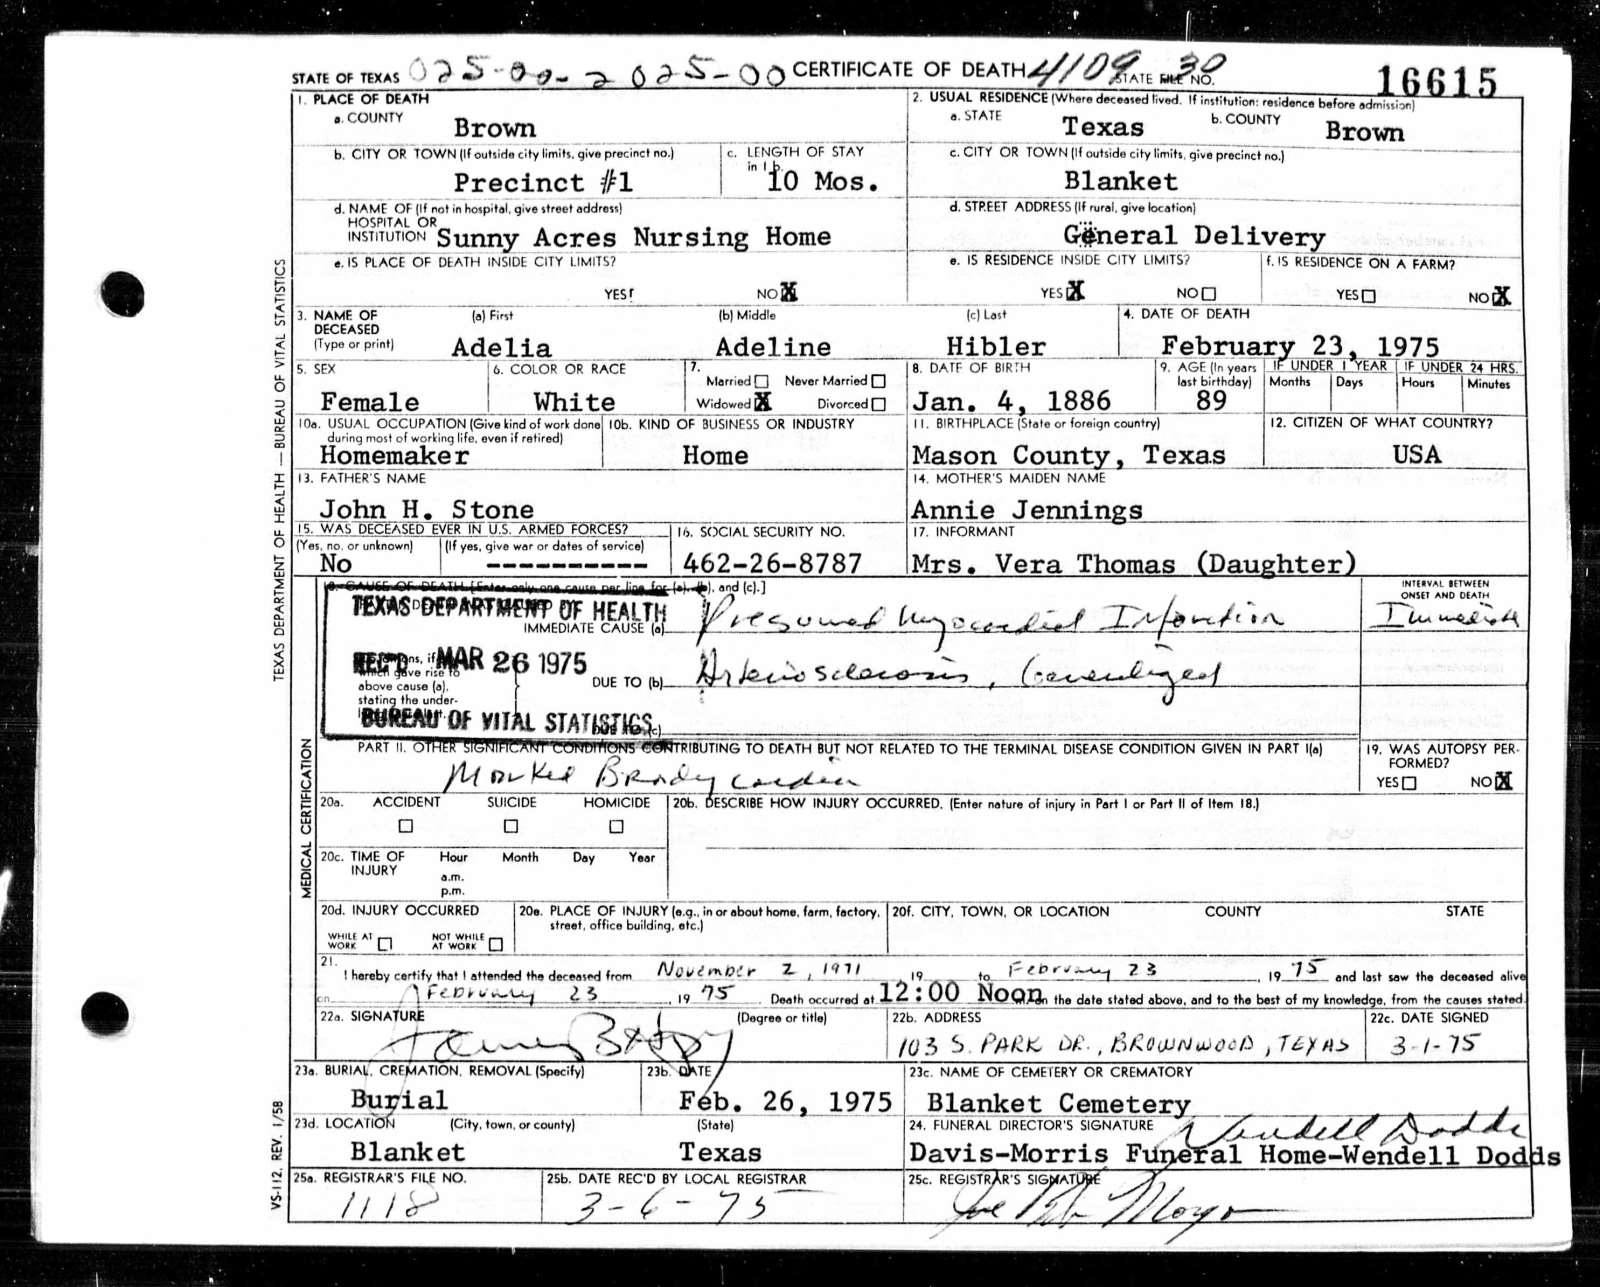 STATE OF TEXAS 025-00-2 025-00 CERTIFICATE OF DEATH 4109 30 STATE FILE NO. 16615
1. PLACE OF DEATH
2. USUAL RESIDENCE (Where deceased lived. If institution: residence before admission)
a. COUNTY Brown
a. STATE Texas b. COUNTY Brown
b. CITY OR TOWN (If outside city limits, give precinct no.) Precinct #1
c. LENGTH OF STAY in 1 b. 10 Mos.
c. CITY OR TOWN (If outside city limits, give precinct no.) Blanket
d. NAME OF (If not in hospital, give street address)
HOSPITAL OR
INSTITUTION Sunny Acres Nursing Home
d. STREET ADDRESS (If rural, give location)
General Delivery
e. IS PLACE OF DEATH INSIDE CITY LIMITS?
YES NO X
e. IS RESIDENCE INSIDE CITY LIMITS?
YES X NO
f. IS RESIDENCE ON A FARM?
YES NO X
3. NAME OF DECEASED (Type or print)
(a) First (b) Middle (c) Last
Adelia Adeline Hibler
4. DATE OF DEATH
February 23, 1975
5. SEX
Female
6. COLOR OR RACE
White
7.
Married Never Married
Widowed X Divorced
8. DATE OF BIRTH
Jan. 4, 1886
9. AGE (In years last birthday)
89
IF UNDER 1 YEAR
Months Days
IF UNDER 24 HRS.
Hours Minutes
10a. USUAL OCCUPATION (Give kind of work done during most of working life, even if retired)
Homemaker
10b. KIND OF BUSINESS OR INDUSTRY
Home
11. BIRTHPLACE (State or foreign country)
Mason County, Texas
12. CITIZEN OF WHAT COUNTRY?
USA
13. FATHER'S NAME
John H. Stone
14. MOTHER'S MAIDEN NAME
Annie Jennings
15. WAS DECEASED EVER IN U.S. ARMED FORCES?
(Yes, no, or unknown) (If yes, give war or dates of service)
No ----------
16. SOCIAL SECURITY NO.
462-26-8787
17. INFORMANT
Mrs. Vera Thomas (Daughter)
18. CAUSE OF DEATH [Enter only one cause per line for (a), (b), and (c).]
INTERVAL BETWEEN
ONSET AND DEATH
TEXAS DEPARTMENT OF HEALTH
IMMEDIATE CAUSE (a) Presumed Myocardial Infarction Immediate
REC'D MAR 26 1975
which gave rise to
above cause (a),
stating the under-
DUE TO (b) Arteriosclerosis, Generalized
BUREAU OF VITAL STATISTICS
DUE TO (c)
PART II. OTHER SIGNIFICANT CONDITIONS CONTRIBUTING TO DEATH BUT NOT RELATED TO THE TERMINAL DISEASE CONDITION GIVEN IN PART I(a)
Marked Bradycardia
19. WAS AUTOPSY PER-
FORMED?
YES NO X
20a. ACCIDENT SUICIDE HOMICIDE
20b. DESCRIBE HOW INJURY OCCURRED. (Enter nature of injury in Part I or Part II of Item 18.)
20c. TIME OF INJURY
Hour Month Day Year
a.m.
p.m.
20d. INJURY OCCURRED
WHILE AT WORK NOT WHILE AT WORK
20e. PLACE OF INJURY (e.g., in or about home, farm, factory, street, office building, etc.)
20f. CITY, TOWN, OR LOCATION COUNTY STATE
21.
I hereby certify that I attended the deceased from November 2, 1971, 19 to February 23 1975 and last saw the deceased alive
on February 23, 1975. Death occurred at 12:00 Noon on the date stated above, and to the best of my knowledge, from the causes stated.
22a. SIGNATURE (Degree or title)
James
22b. ADDRESS
103 S. PARK DR., BROWNWOOD, TEXAS
22c. DATE SIGNED
3-1-75
23a. BURIAL, CREMATION, REMOVAL (Specify)
Burial
23b. DATE
Feb. 26, 1975
23c. NAME OF CEMETERY OR CREMATORY
Blanket Cemetery
23d. LOCATION (City, town, or county) (State)
Blanket Texas
24. FUNERAL DIRECTOR'S SIGNATURE Wendell Dodds
Davis-Morris Funeral Home-Wendell Dodds
25a. REGISTRAR'S FILE NO.
1118
25b. DATE REC'D BY LOCAL REGISTRAR
3-6-75
25c. REGISTRAR'S SIGNATURE
TEXAS DEPARTMENT OF HEALTH — BUREAU OF VITAL STATISTICS
MEDICAL CERTIFICATION
VS-112, REV. 1/58